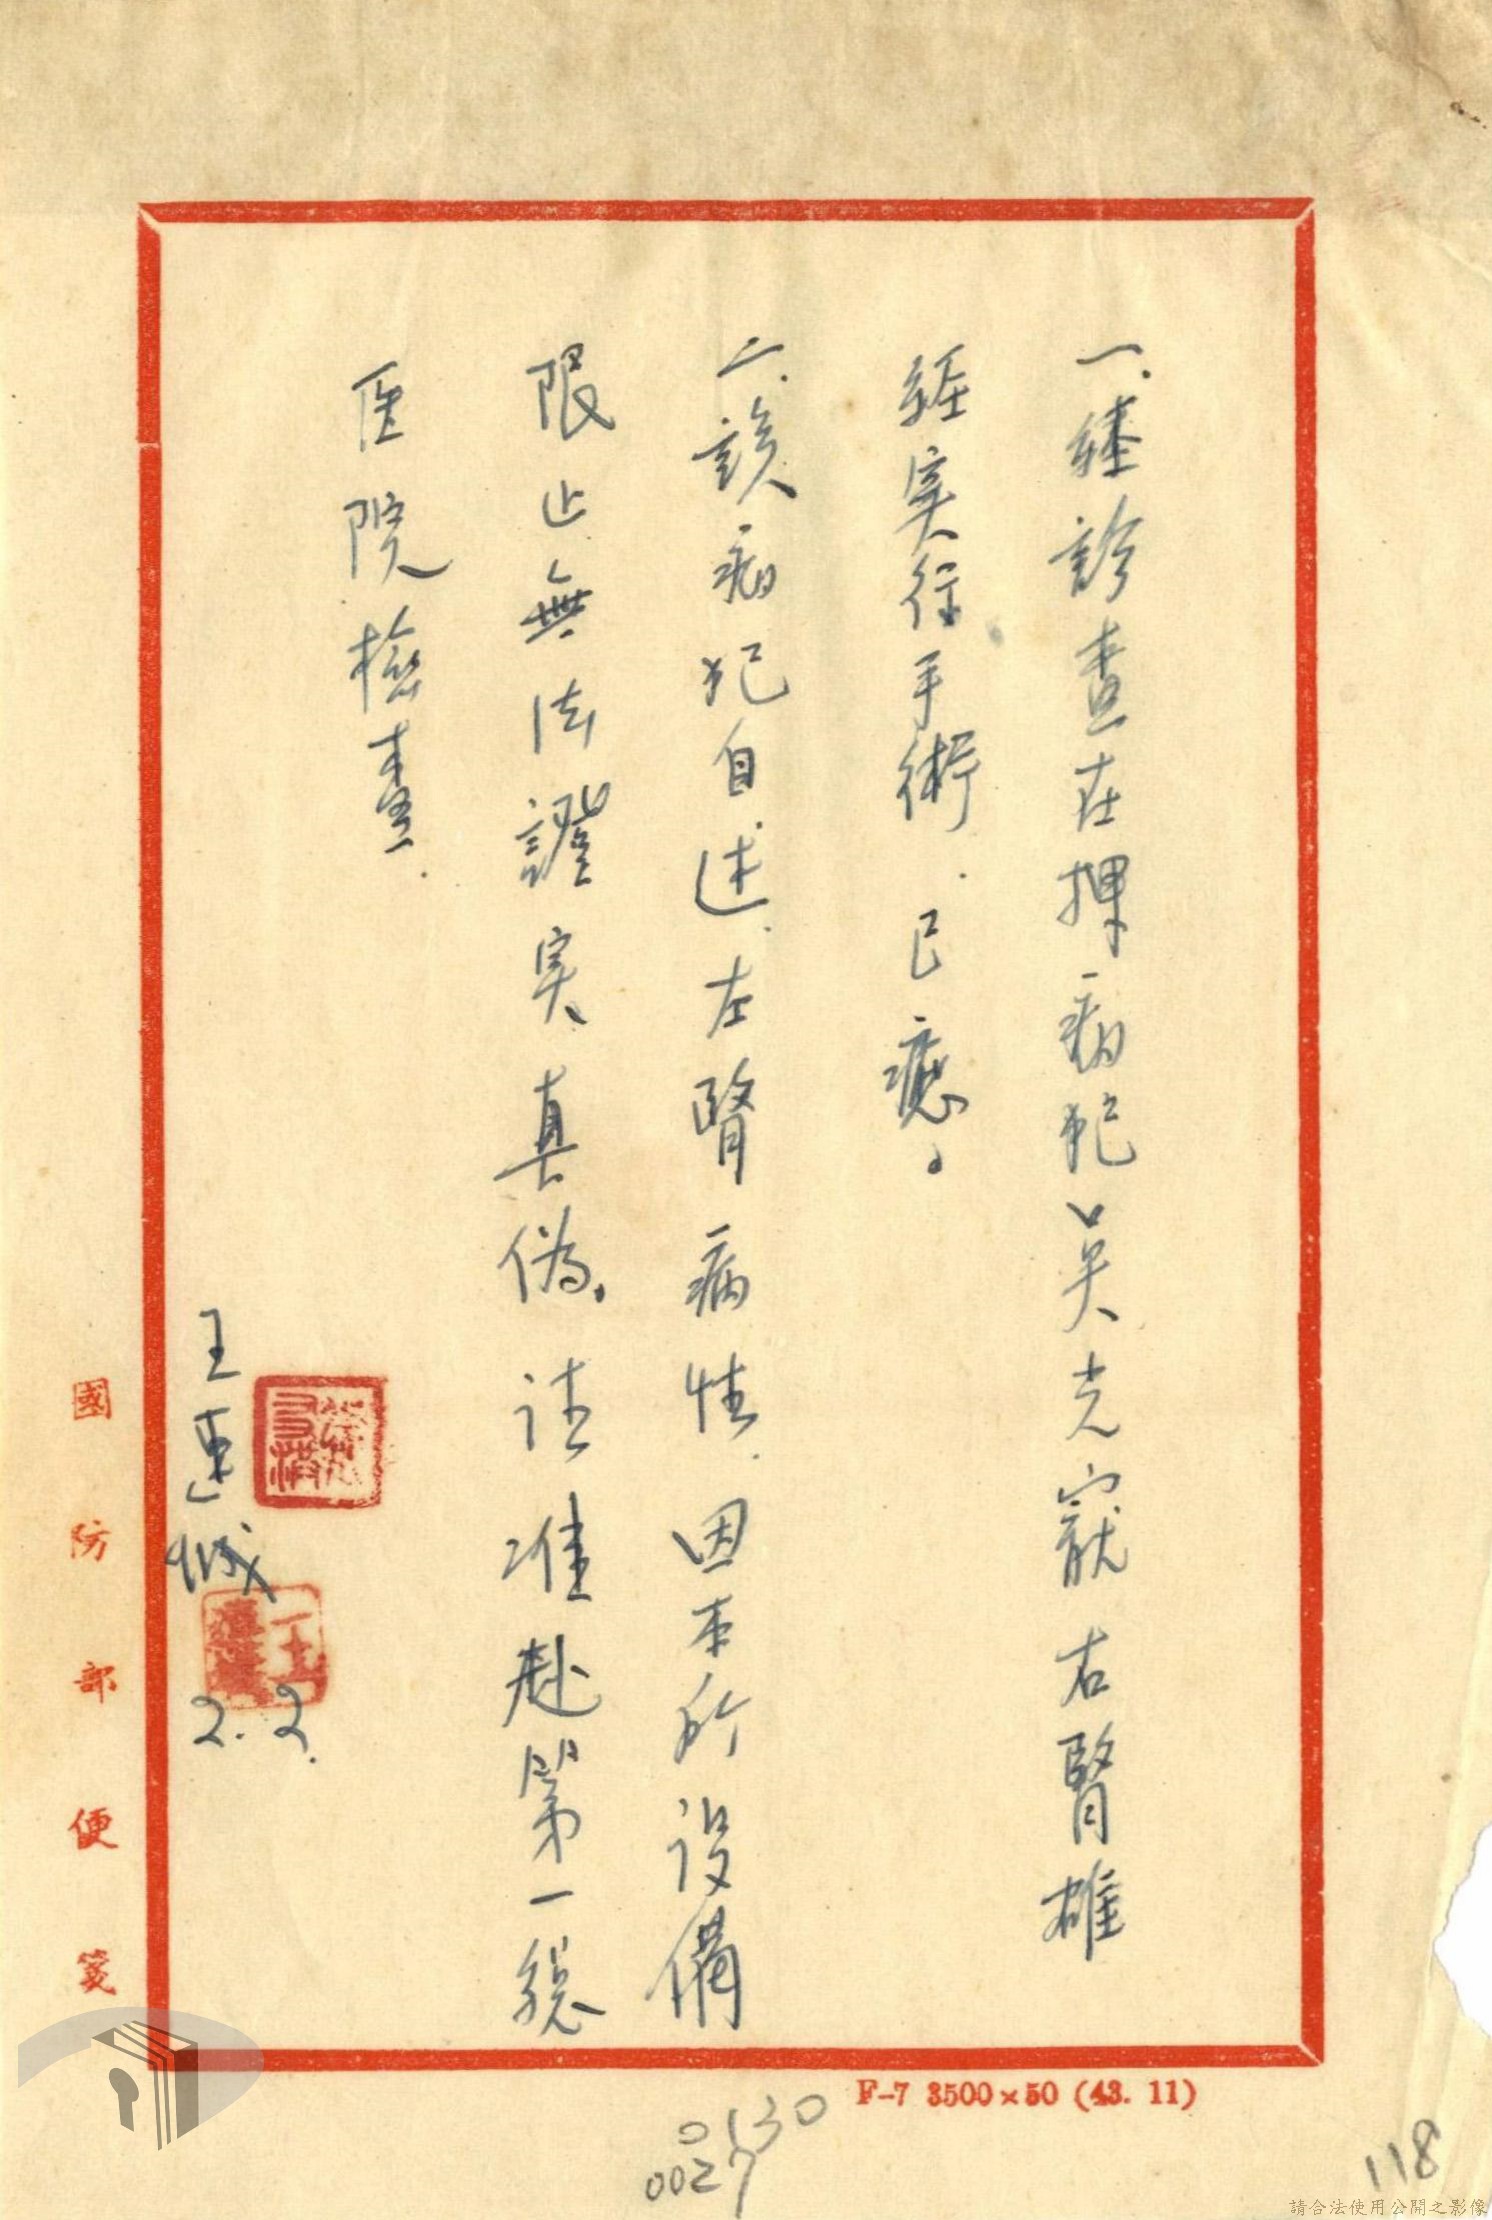 一.經診查在押病犯吳克寵右腎雖
經实行手術.已癒。
二.該病犯自述.左腎病性.因本所设備
限止無法證实真偽.请准赴第一總
医院檢查.
王連城
2.2.
國防部便箋
F-7 3500×50 (43. 11)
0130
0027
118
請合法使用公開之影像